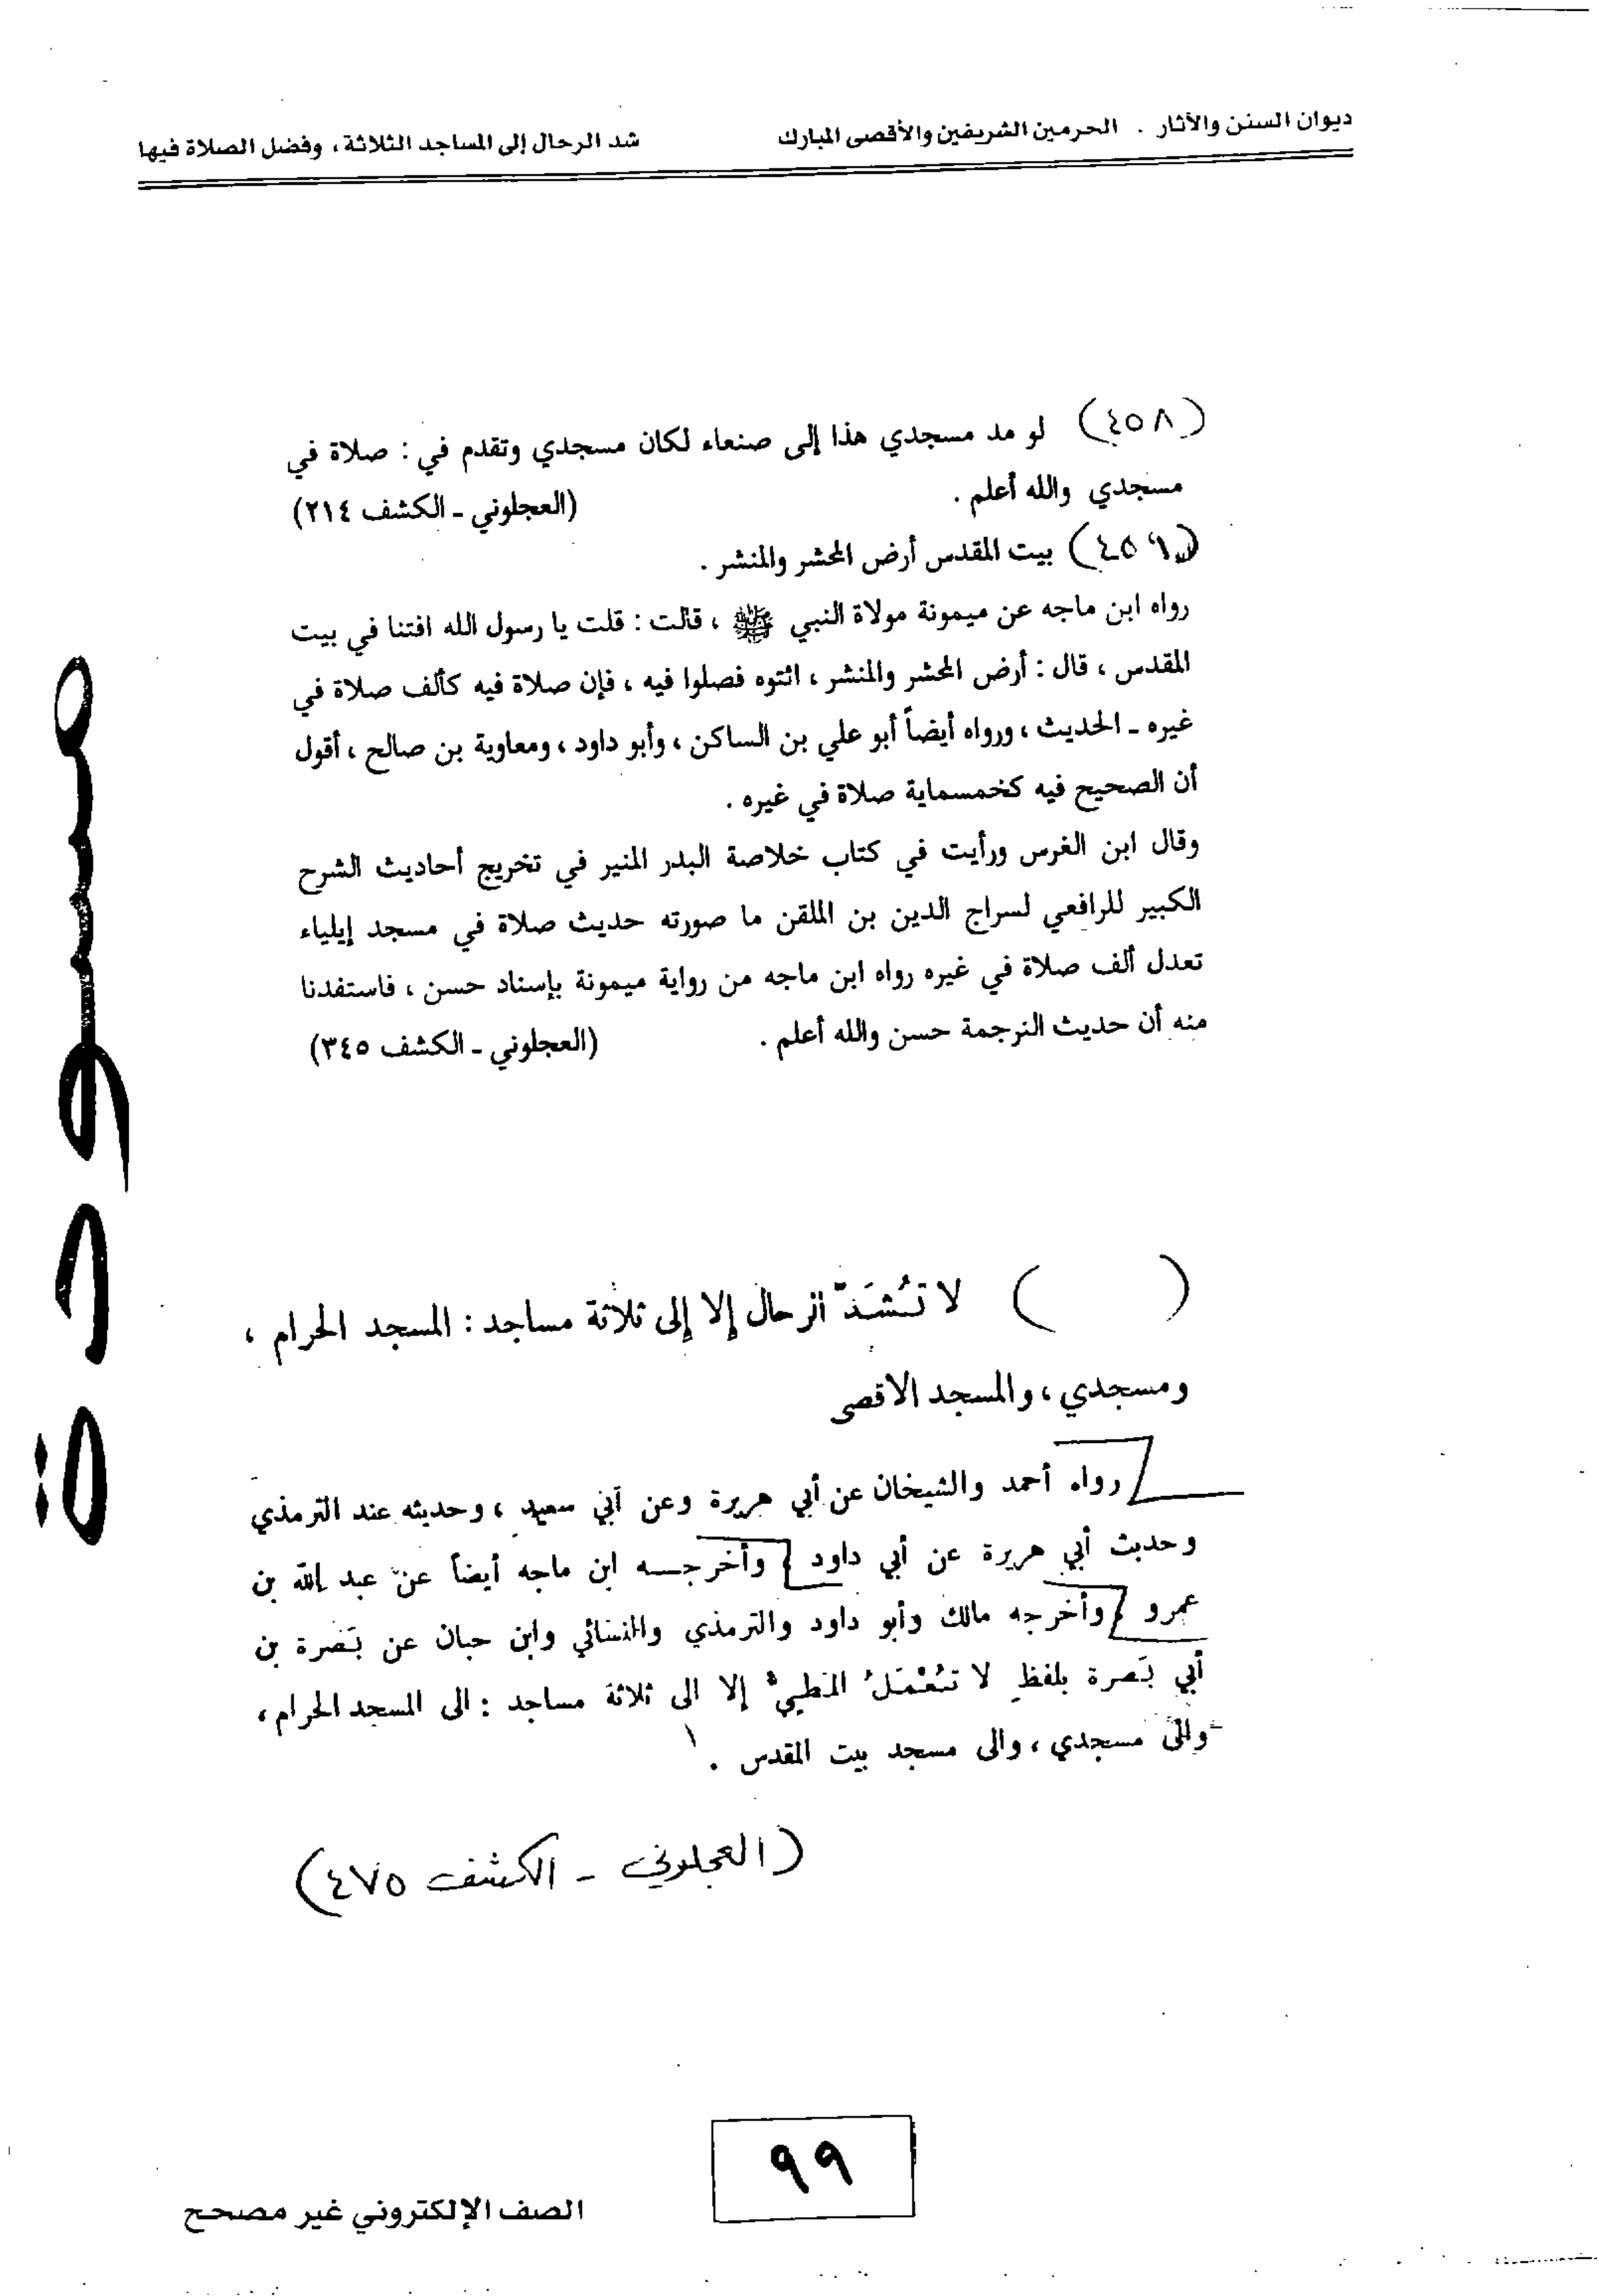 ديوان السنن والآثار . الحرمين الشريفين والأقصى المبارك
شد الرحال إلى المساجد الثلاثة ، وفضل الصلاة فيها
(٤٥٨) لو مد مسجدي هذا إلى صنعاء لكان مسجدي وتقدم في : صلاة في
مسجدي والله أعلم . (العجلوني ـ الكشف ٢١٤)
(٤٥٩) بيت المقدس أرض المحشر والمنشر .
رواه ابن ماجه عن ميمونة مولاة النبي ﷺ ، قالت : قلت يا رسول الله افتنا في بيت
المقدس ، قال : أرض المحشر والمنشر ، ائتوه فصلوا فيه ، فإن صلاة فيه كألف صلاة في
غيره ـ الحديث ، ورواه أيضاً أبو علي بن الساكن ، وأبو داود ، ومعاوية بن صالح ، أقول
أن الصحيح فيه كخمسماية صلاة في غيره .
وقال ابن الغرس ورأيت في كتاب خلاصة البدر المنير في تخريج أحاديث الشرح
الكبير للرافعي لسراج الدين بن الملقن ما صورته حديث صلاة في مسجد إيلياء
تعدل ألف صلاة في غيره رواه ابن ماجه من رواية ميمونة بإسناد حسن ، فاستفدنا
منه أن حديث الترجمة حسن والله أعلم . (العجلوني ـ الكشف ٣٤٥)
( ) لا تُشَدّ الرحال إلا إلى ثلاثة مساجد : المسجد الحرام ،
ومسجدي ، والمسجد الاقصى
رواه أحمد والشيخان عن أبي هريرة وعن أبي سعيد ، وحديثه عند الترمذي
وحديث أبي هريرة عن أبي داود ] وأخرجه ابن ماجه أيضاً عن عبد الله بن
عمرو ] وأخرجه مالك وأبو داود والترمذي والنسائي وابن حبان عن بَصرة بن
أبي بَصرة بلفظ لا تُعْمَلُ المطيُّ إلا الى ثلاثة مساجد : الى المسجد الحرام ،
والى مسجدي ، والى مسجد بيت المقدس .
(العجلوني ـ الكشف ٤٧٥)
مسودة
٩٩
الصف الإلكتروني غير مصحح